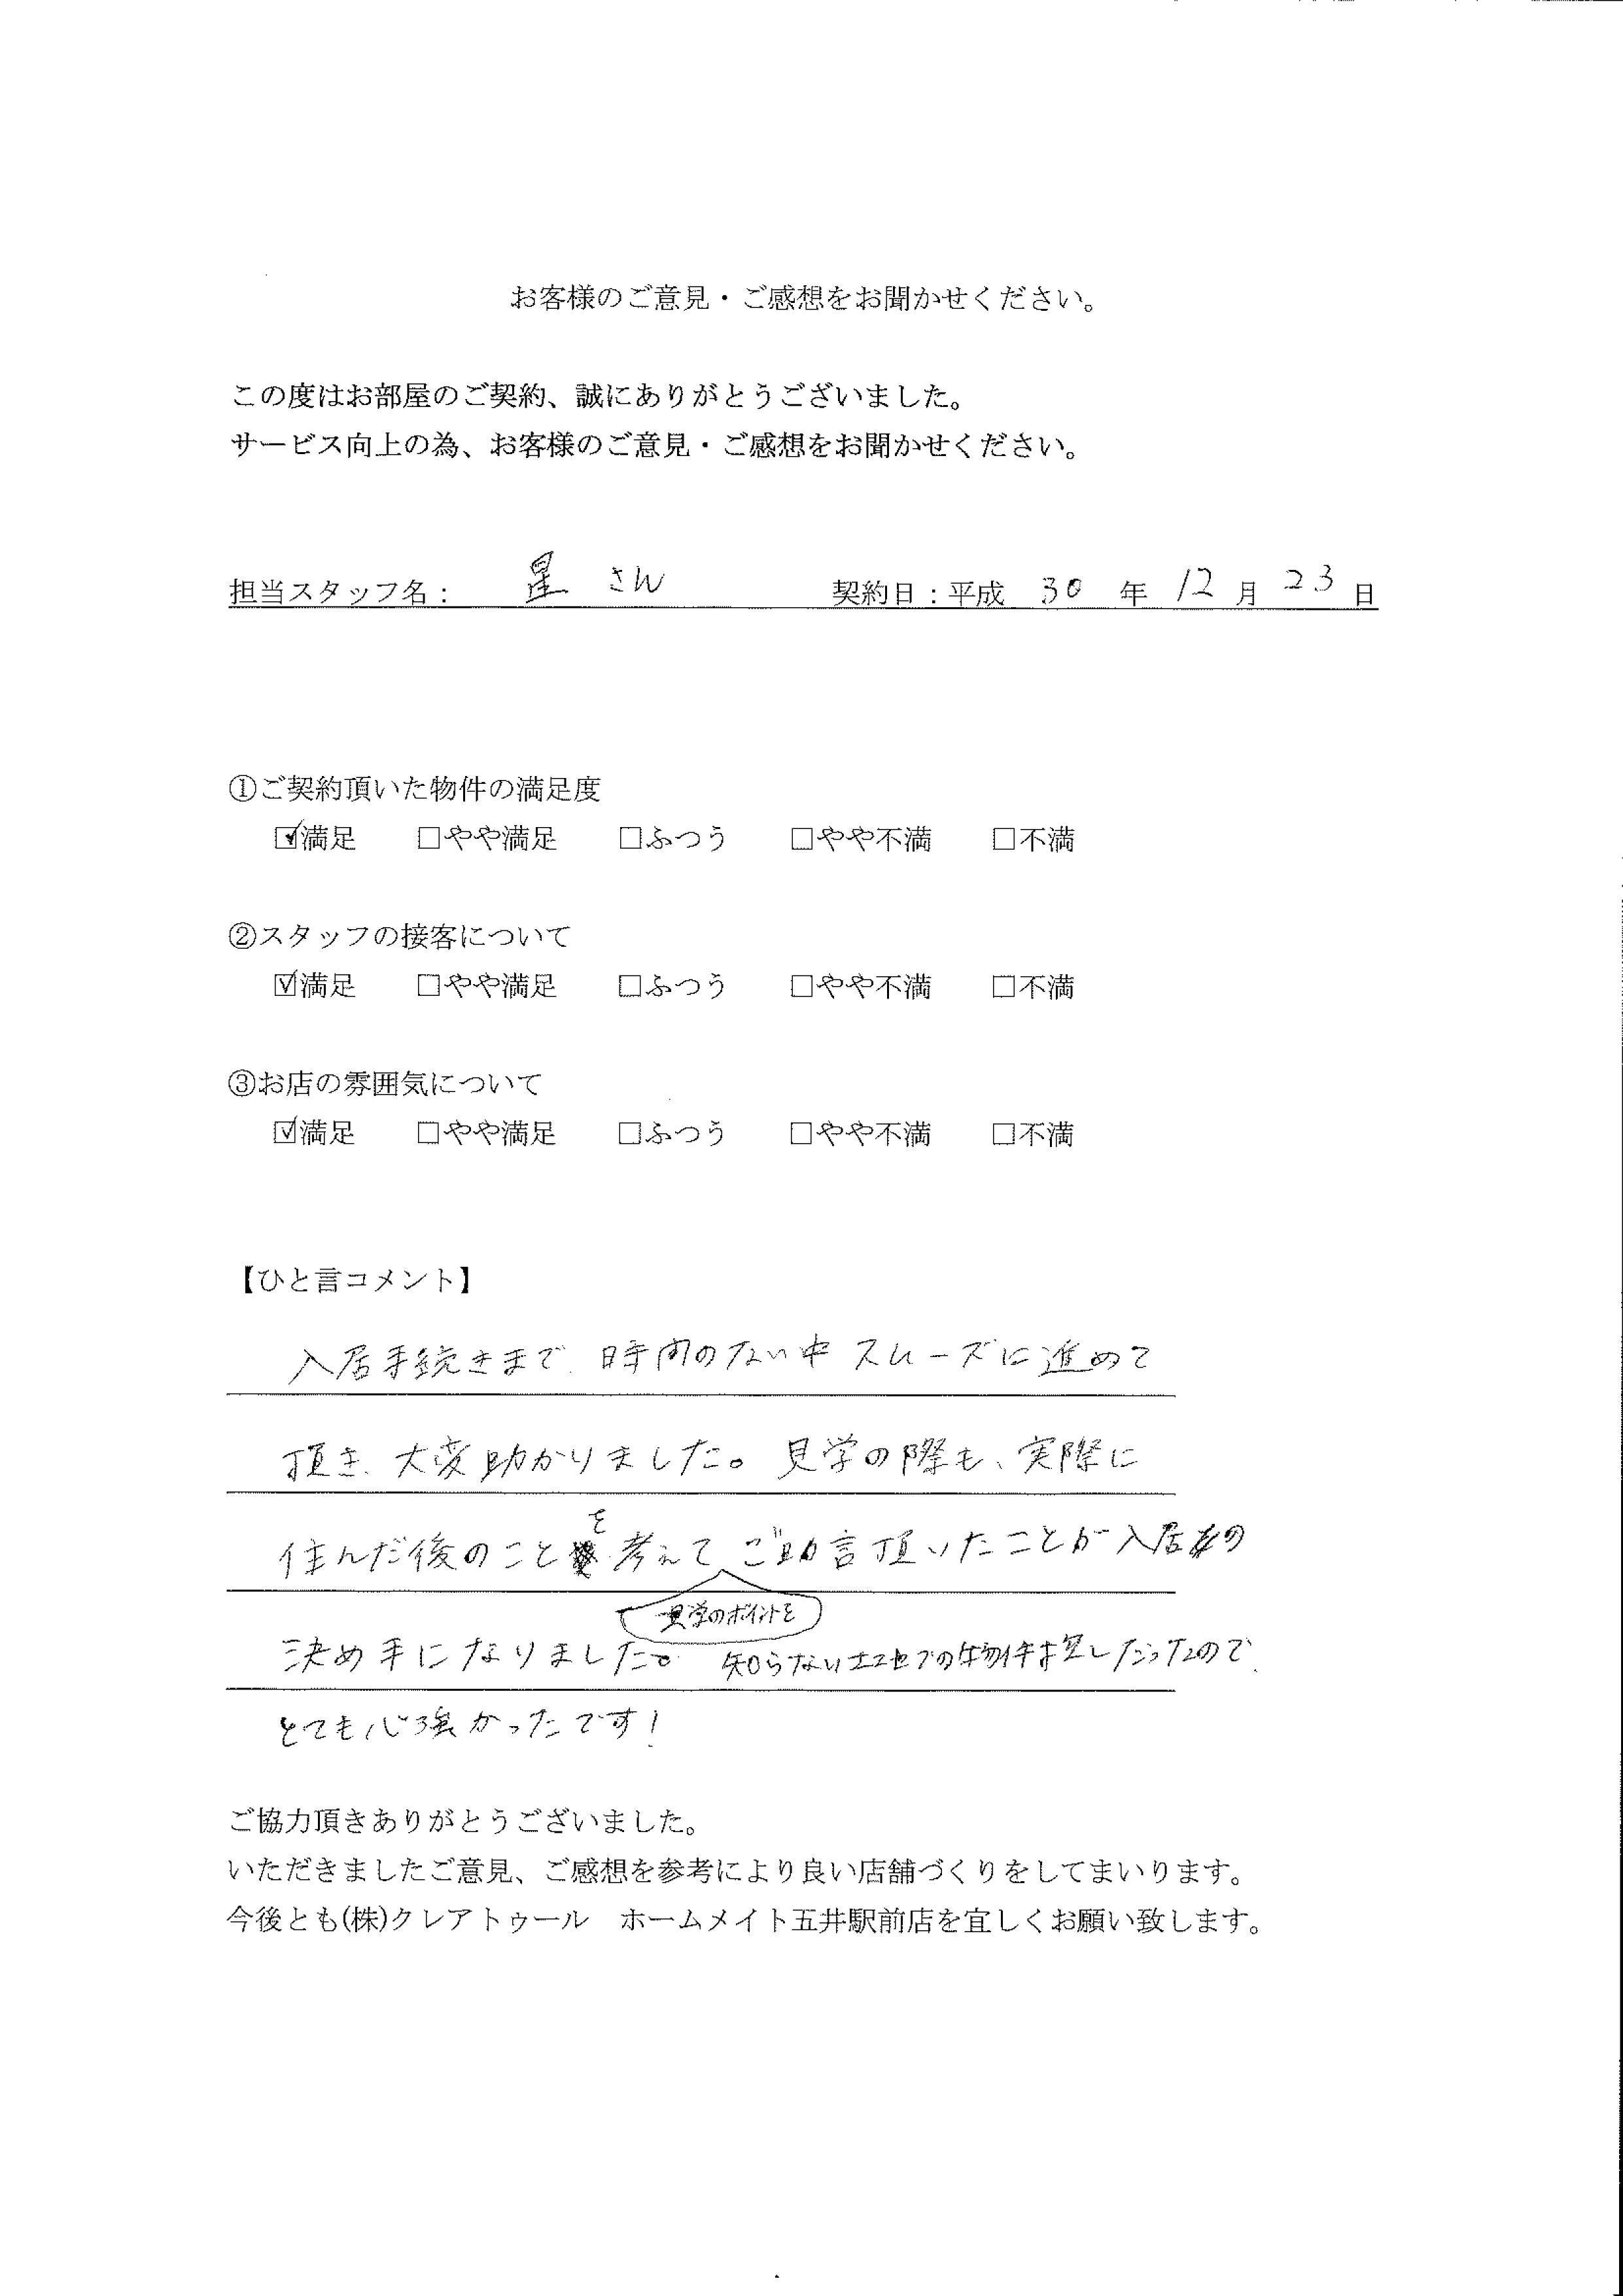 お客様のご意見・ご感想をお聞かせください。
この度はお部屋のご契約、誠にありがとうございました。
サービス向上の為、お客様のご意見・ご感想をお聞かせください。
担当スタッフ名： 星 さん 契約日：平成 30 年 12 月 23 日
①ご契約頂いた物件の満足度
☑満足 □やや満足 □ふつう □やや不満 □不満
②スタッフの接客について
☑満足 □やや満足 □ふつう □やや不満 □不満
③お店の雰囲気について
☑満足 □やや満足 □ふつう □やや不満 □不満
【ひと言コメント】
入居手続きまで、時間のない中 スムーズに進めて
頂き、大変助かりました。見学の際も、実際に
住んだ後のことを考えて ご助言頂いたことが入居の
見学のポイントを
決め手になりました。 知らない土地での物件探しだったので、
とても心強かったです！
ご協力頂きありがとうございました。
いただきましたご意見、ご感想を参考により良い店舗づくりをしてまいります。
今後とも(株)クレアトゥール ホームメイト五井駅前店を宜しくお願い致します。